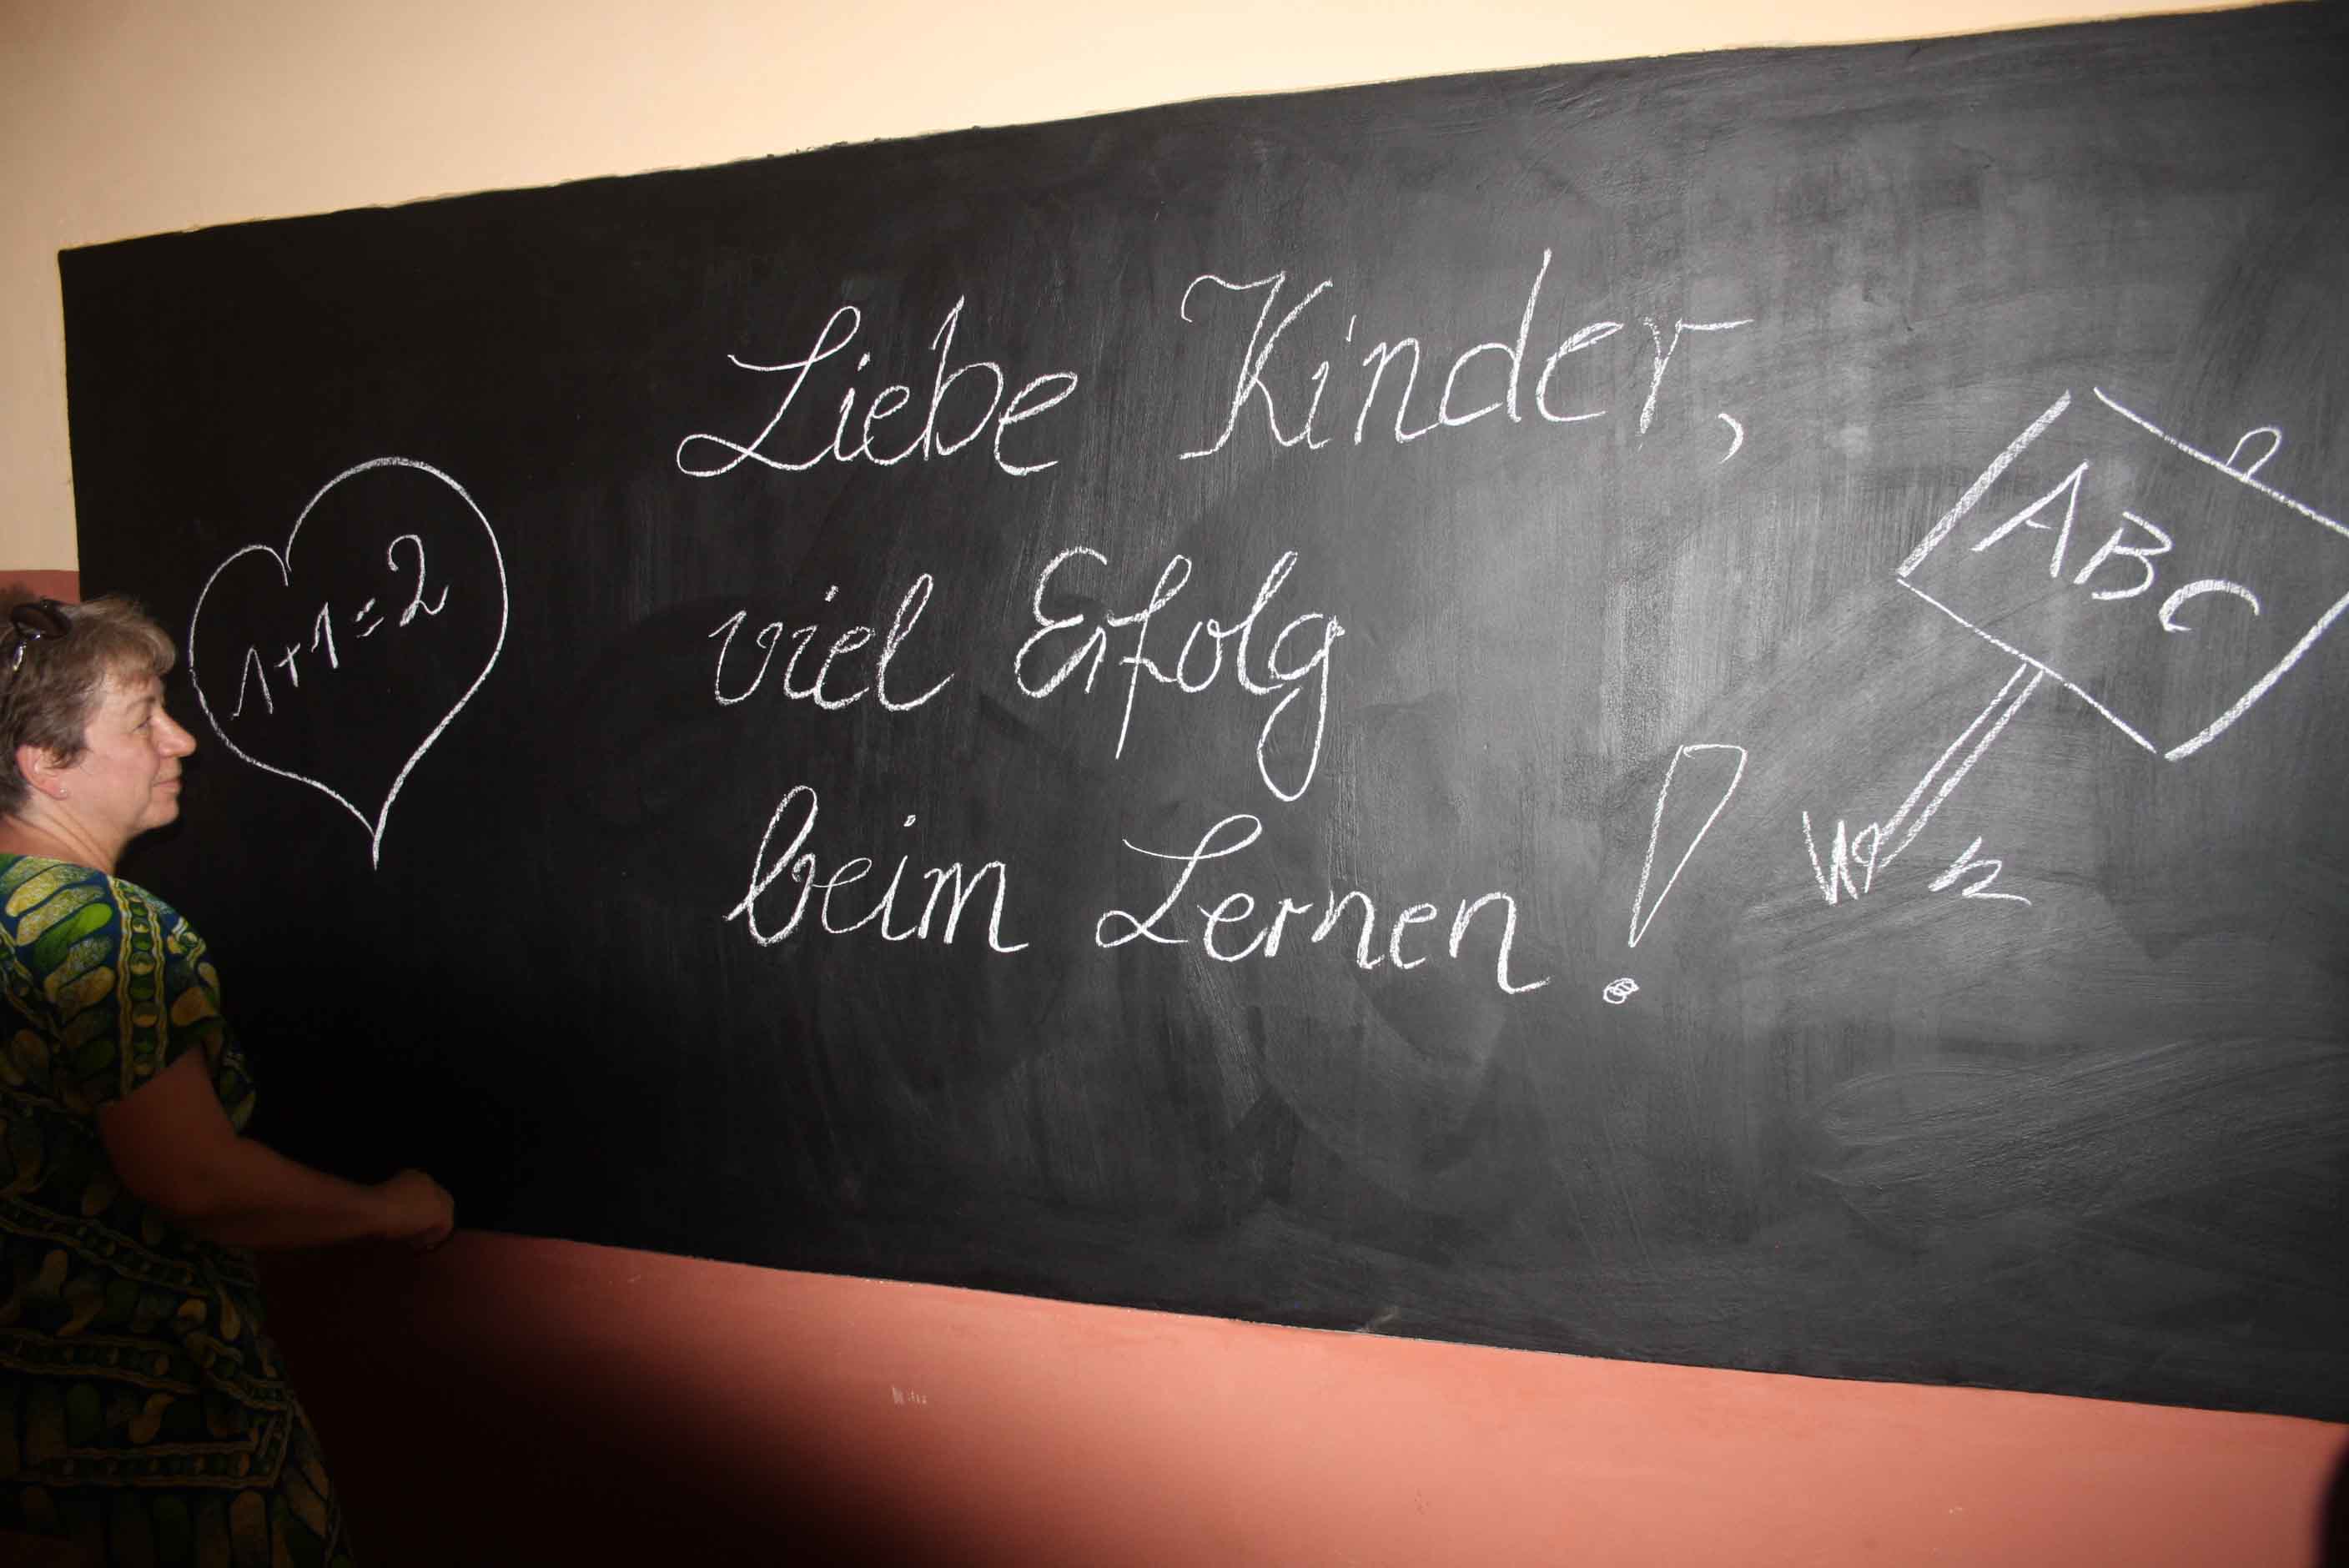 1+1=2
Liebe Kinder,
viel Erfolg
beim Lernen!
ABC